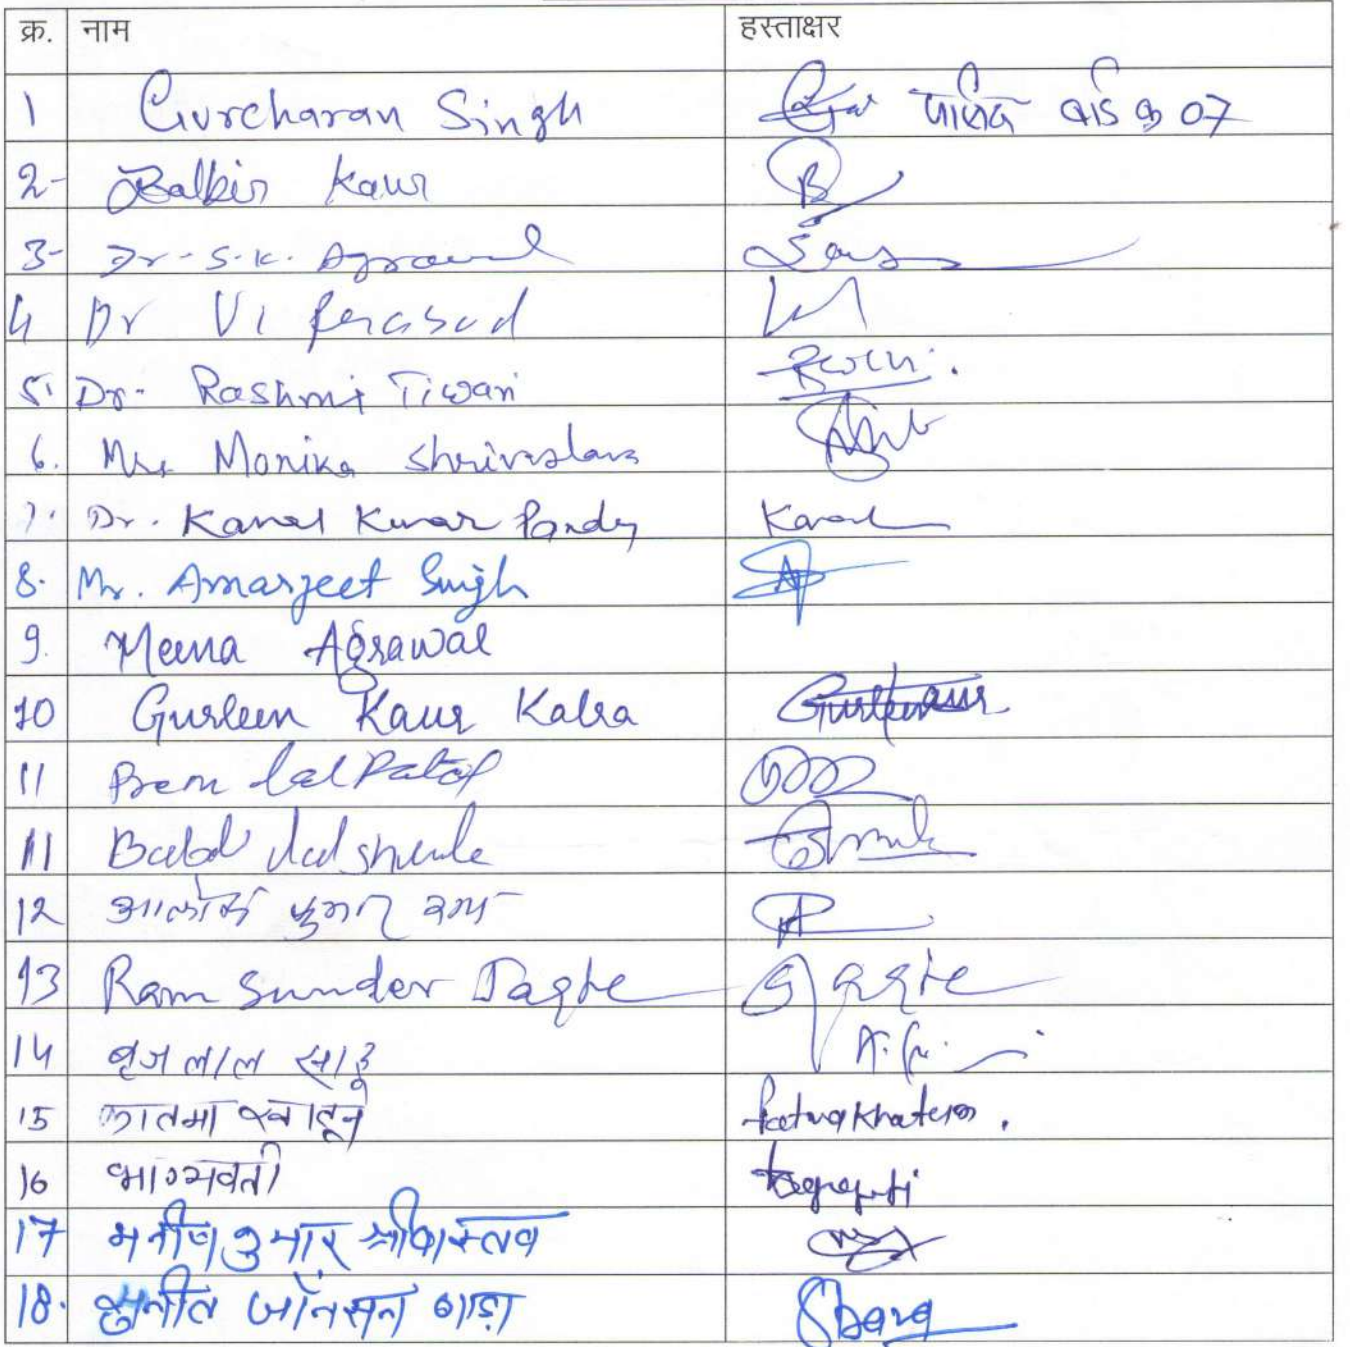 क्र. नाम हस्ताक्षर
1 Gurcharan Singh पार्षद वार्ड क्र 07
2- Balbir Kaur B
3- Dr. S.K. Agrawal
4 Dr V i Perasad
5. Dr. Rashmi Tiwari
6. Mrs Monika Shrivastava
7. Dr. Kamal Kumar Pandey Kamal
8. Mr. Amarjeet Singh
9. Meena Agrawal
10 Gurleen Kaur Kalra Gurleenkaur
11 Prem Lal Patel
11 Babu lal shukla
12 आलोक कुमार वर्मा
13 Ram Sunder Jagte
14 बृज लाल साहू
15 फातमा खातून Fatma Khatun.
16 भाग्यवती
17 मनीष कुमार श्रीवास्तव
18. सुनीत जॉनसन बाड़ा Sbara